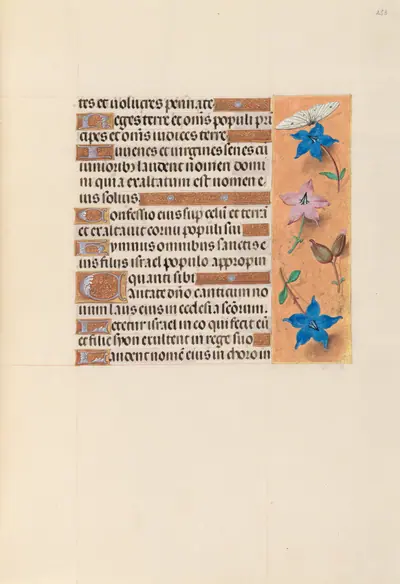 tes et volucres pennate
Reges terre et om̄s populi prī
cipes et om̄s iudices terre
Iuvenes et virgines senes cū
iunioribꝰ laudent nomen domi
ni quia exaltatum est nomen e
ius solius
Confessio eius sup celū et terrā
et exaltavit cornu populi sui
Hymnus omnibus sanctis e
ius filiis israel populo appropin
quanti sibi
Cantate dn̄o canticum no
vum laus eius in ecclesia sc̄orum
Letetur israel in eo qui fecit eū
et filie syon exultent in rege suo
Laudent nomē eius in choro in